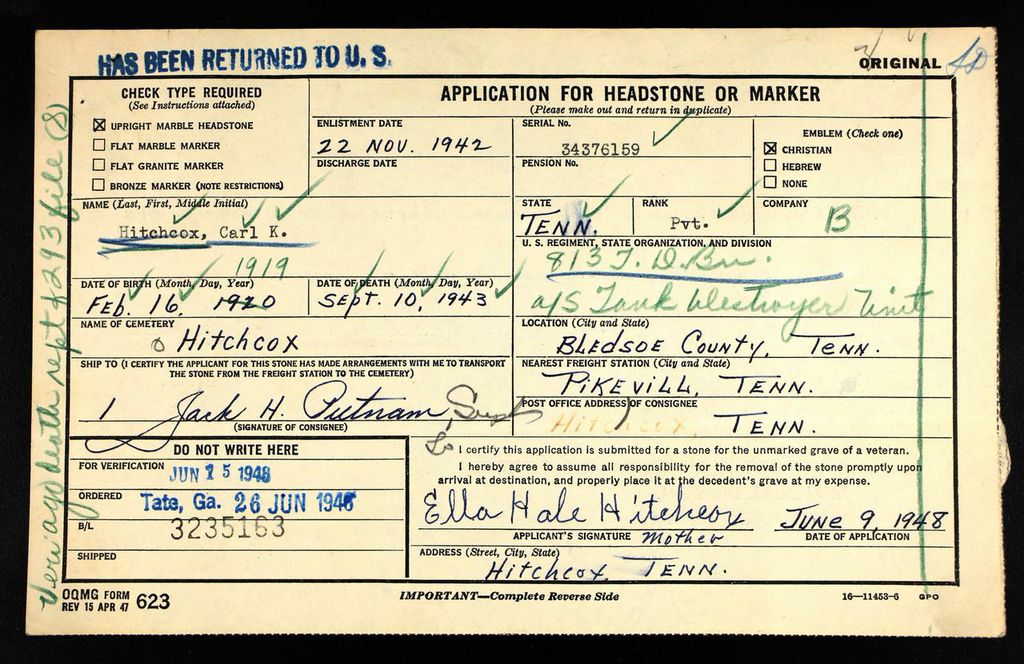 HAS BEEN RETURNED TO U. S.
ORIGINAL
CHECK TYPE REQUIRED
(See Instructions attached)
☒ UPRIGHT MARBLE HEADSTONE
☐ FLAT MARBLE MARKER
☐ FLAT GRANITE MARKER
☐ BRONZE MARKER (NOTE RESTRICTIONS)
APPLICATION FOR HEADSTONE OR MARKER
(Please make out and return in duplicate)
ENLISTMENT DATE
22 NOV. 1942
DISCHARGE DATE
SERIAL No.
34376159
PENSION No.
EMBLEM (Check one)
☒ CHRISTIAN
☐ HEBREW
☐ NONE
NAME (Last, First, Middle Initial)
Hitchcox, Carl K.
STATE
TENN.
RANK
Pvt.
COMPANY
B
U. S. REGIMENT, STATE ORGANIZATION, AND DIVISION
813 T. D. Bn.
a/S Tank Destroyer Unit
1919
DATE OF BIRTH (Month, Day, Year)
FEB. 16, 1920
DATE OF DEATH (Month, Day, Year)
SEPT. 10, 1943
NAME OF CEMETERY
Hitchcox
LOCATION (City and State)
BLEDSOE COUNTY, TENN.
SHIP TO (I CERTIFY THE APPLICANT FOR THIS STONE HAS MADE ARRANGEMENTS WITH ME TO TRANSPORT
THE STONE FROM THE FREIGHT STATION TO THE CEMETERY)
Jack H. Putnam
(SIGNATURE OF CONSIGNEE)
NEAREST FREIGHT STATION (City and State)
PIKEVILL, TENN.
POST OFFICE ADDRESS OF CONSIGNEE
Hitchcox, TENN.
DO NOT WRITE HERE
FOR VERIFICATION
JUN 15 1948
ORDERED
Tate, Ga. 26 JUN 1948
B/L
3235163
SHIPPED
I certify this application is submitted for a stone for the unmarked grave of a veteran.
I hereby agree to assume all responsibility for the removal of the stone promptly upon
arrival at destination, and properly place it at the decedent's grave at my expense.
Ella Hale Hitchcox JUNE 9, 1948
APPLICANT'S SIGNATURE Mother DATE OF APPLICATION
ADDRESS (Street, City, State)
Hitchcox, TENN.
OQMG FORM
REV 15 APR 47 623
IMPORTANT—Complete Reverse Side
16—11453-6 GPO
death rept 293 file